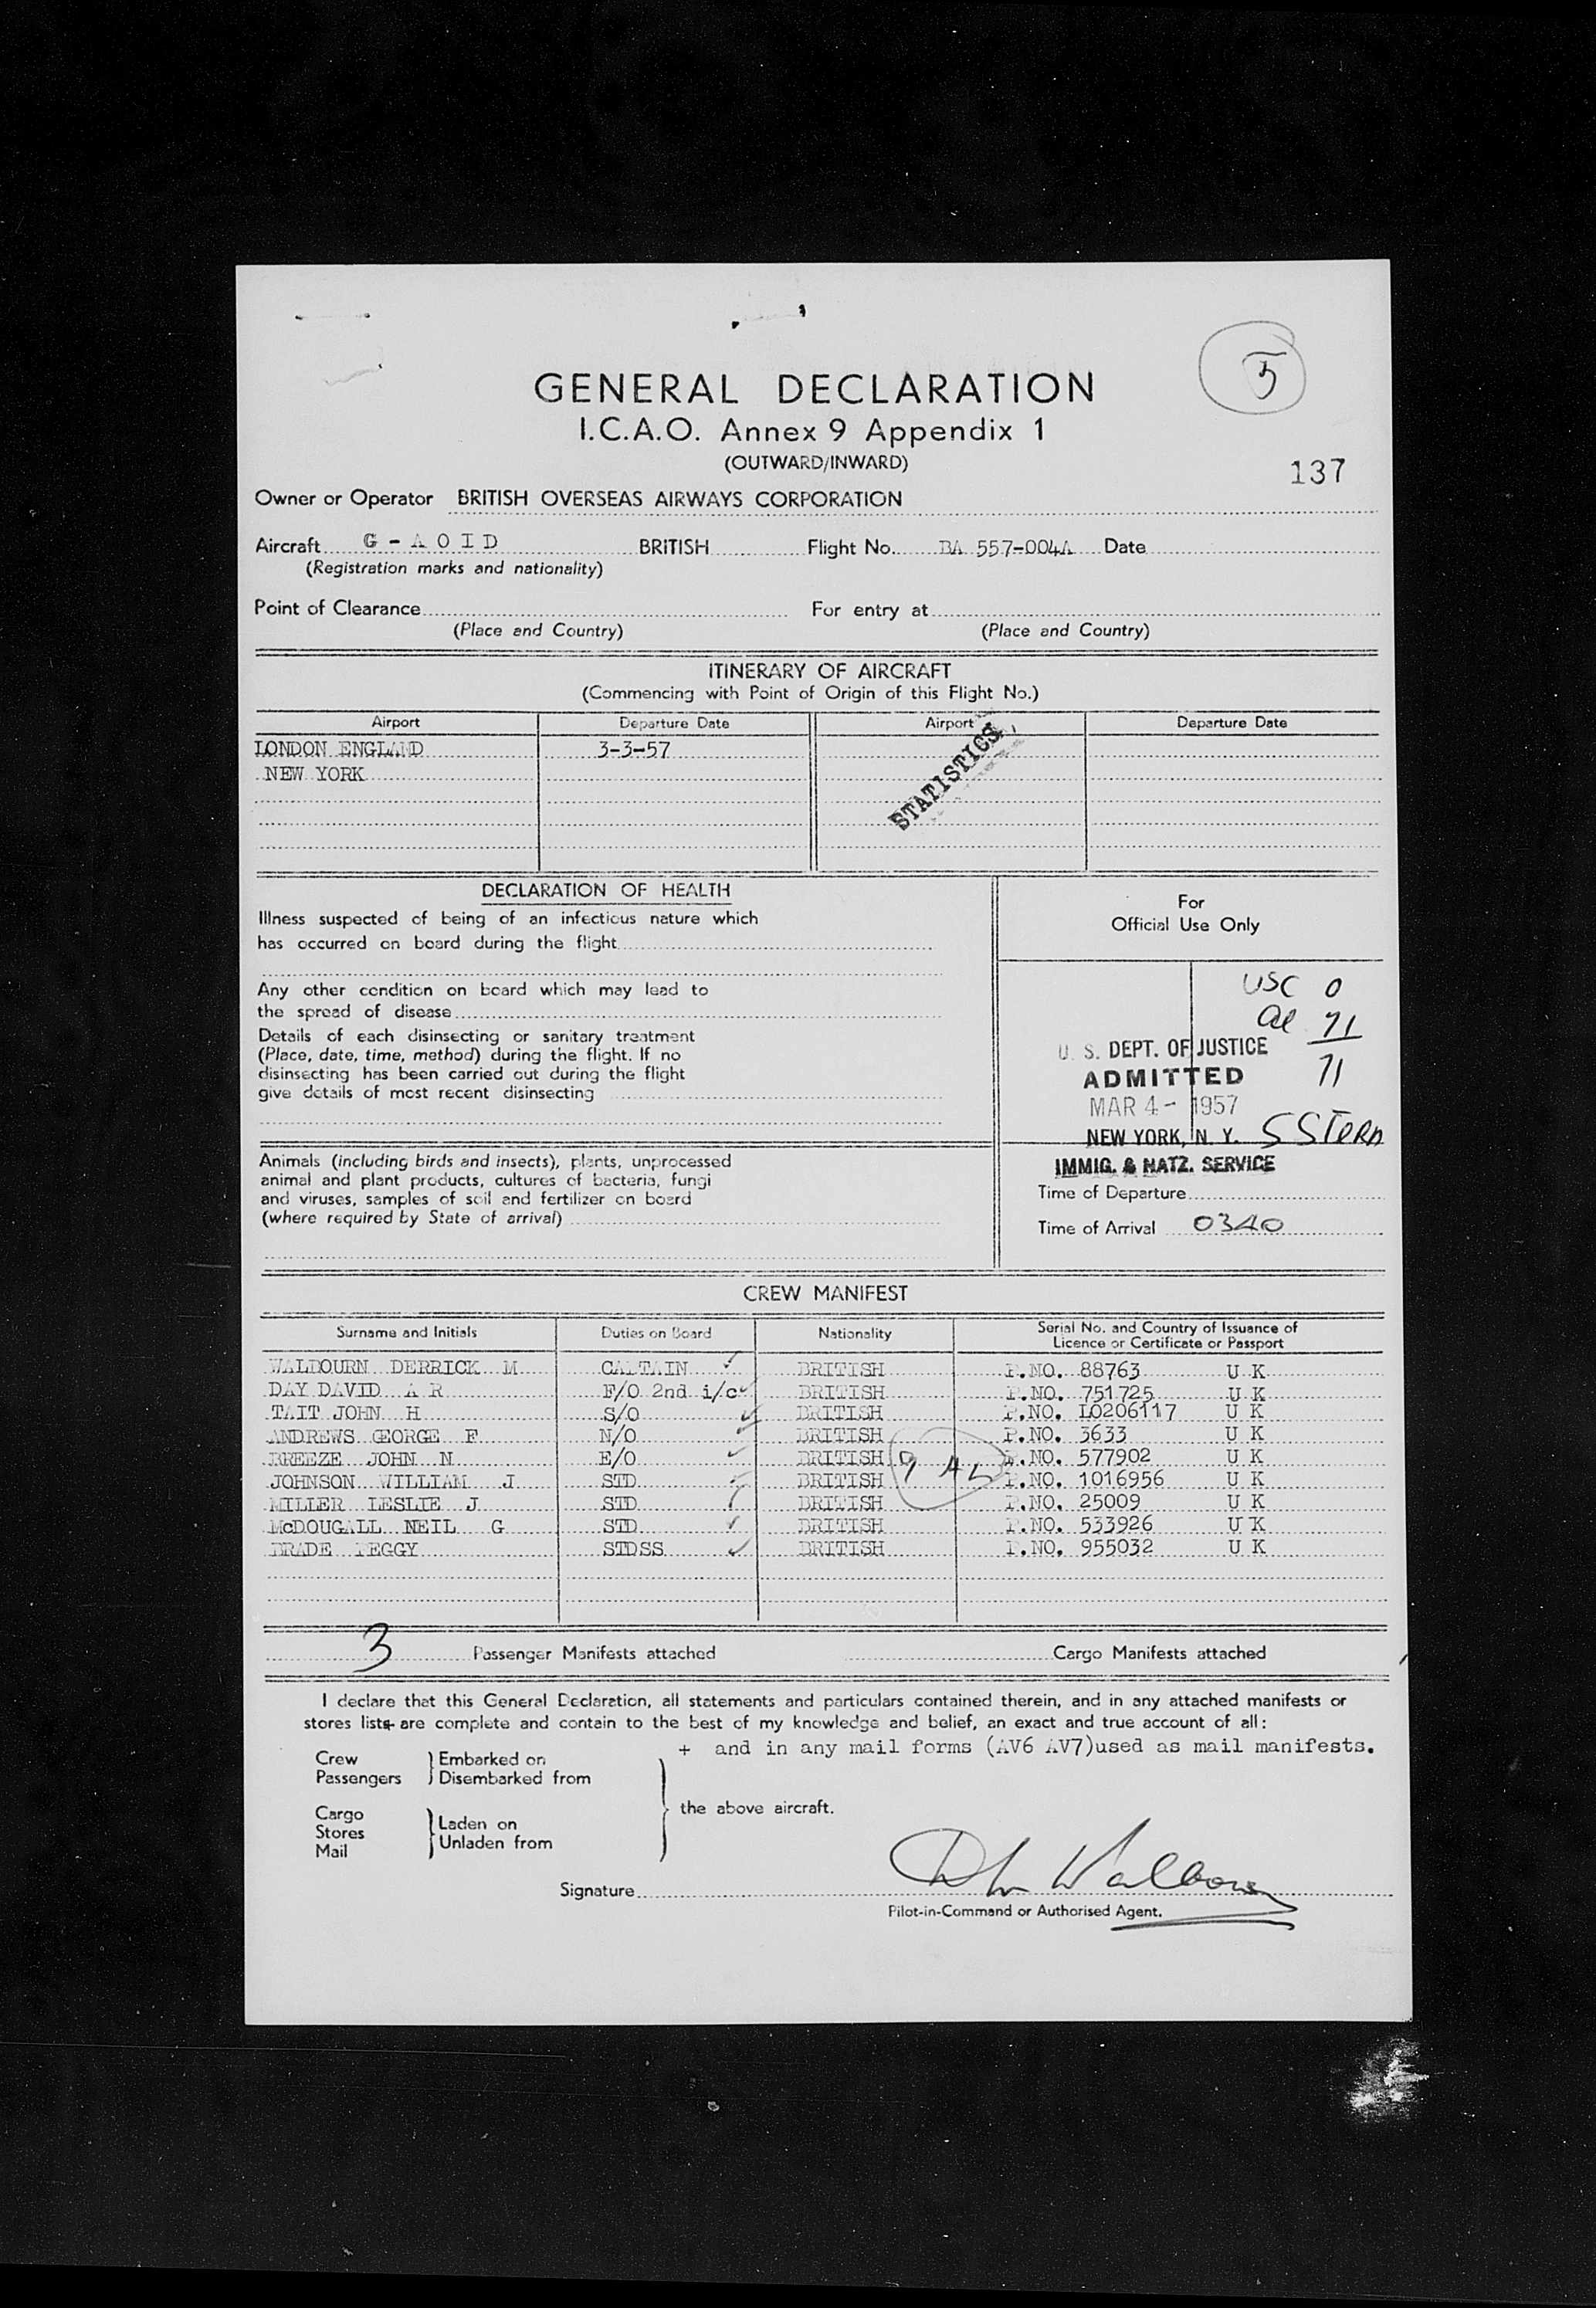 5
GENERAL DECLARATION
I.C.A.O. Annex 9 Appendix 1
(OUTWARD/INWARD)
137
Owner or Operator BRITISH OVERSEAS AIRWAYS CORPORATION
Aircraft G - A O I D BRITISH Flight No. BA 557-004A Date
(Registration marks and nationality)
Point of Clearance For entry at
(Place and Country) (Place and Country)
ITINERARY OF AIRCRAFT
(Commencing with Point of Origin of this Flight No.)
Airport Departure Date Airport Departure Date
LONDON ENGLAND 3-3-57
NEW YORK
STATISTICS
DECLARATION OF HEALTH
Illness suspected of being of an infectious nature which
has occurred on board during the flight
Any other condition on board which may lead to
the spread of disease
Details of each disinsecting or sanitary treatment
(Place, date, time, method) during the flight. If no
disinsecting has been carried out during the flight
give details of most recent disinsecting
Animals (including birds and insects), plants, unprocessed
animal and plant products, cultures of bacteria, fungi
and viruses, samples of soil and fertilizer on board
(where required by State of arrival)
For
Official Use Only
USC 0
al 71
71
U. S. DEPT. OF JUSTICE
ADMITTED
MAR 4 - 1957
NEW YORK, N. Y. S STERN
IMMIG. & NATZ. SERVICE
Time of Departure
Time of Arrival 0340
CREW MANIFEST
Surname and Initials Duties on Board Nationality Serial No. and Country of Issuance of
Licence or Certificate or Passport
WALDOURN DERRICK M CAPTAIN BRITISH P.NO. 88763 U K
DAY DAVID A R F/O 2nd i/c BRITISH P.NO. 751725 U K
TAIT JOHN H S/O BRITISH P.NO. L0206117 U K
ANDREWS GEORGE F N/O BRITISH P.NO. 3633 U K
BREEZE JOHN N E/O BRITISH P.NO. 577902 U K
JOHNSON WILLIAM J STD BRITISH P.NO. 1016956 U K
MILLER LESLIE J STD BRITISH P.NO. 25009 U K
McDOUGALL NEIL G STD BRITISH P.NO. 533926 U K
BRADE PEGGY STDSS BRITISH P.NO. 955032 U K
3 Passenger Manifests attached Cargo Manifests attached
I declare that this General Declaration, all statements and particulars contained therein, and in any attached manifests or
stores lists+ are complete and contain to the best of my knowledge and belief, an exact and true account of all:
+ and in any mail forms (AV6 AV7)used as mail manifests.
Crew Embarked on
Passengers Disembarked from
the above aircraft.
Cargo
Stores Laden on
Mail Unladen from
Signature
Pilot-in-Command or Authorised Agent.